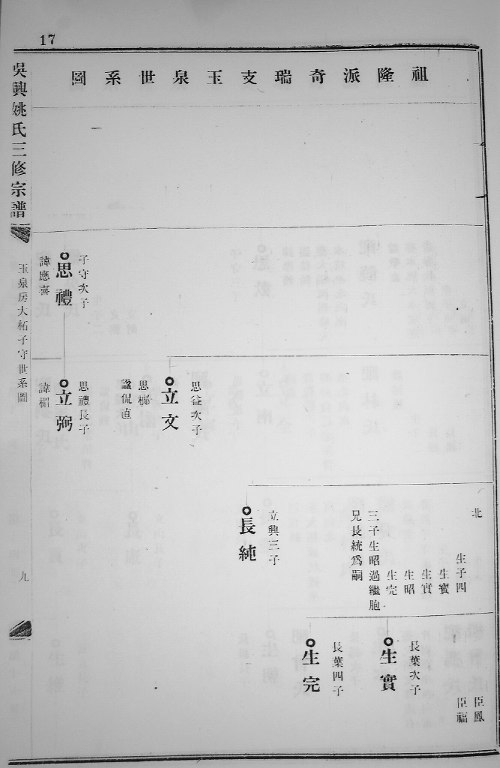 17
祖隆派奇瑞支玉泉世系圖
吳興姚氏三修宗譜
玉泉房大柘子守世系圖
九
臣鳳
臣福
北
生子四
生寶
生實
生昭
生完
三子生昭過繼胞
兄長統爲嗣
長葉次子
生實
長葉四子
生完
立興三子
長純
思益次子
立文
思櫛
諡侃直
子守次子
思禮
諱應喜
思禮長子
立弼
諱榴